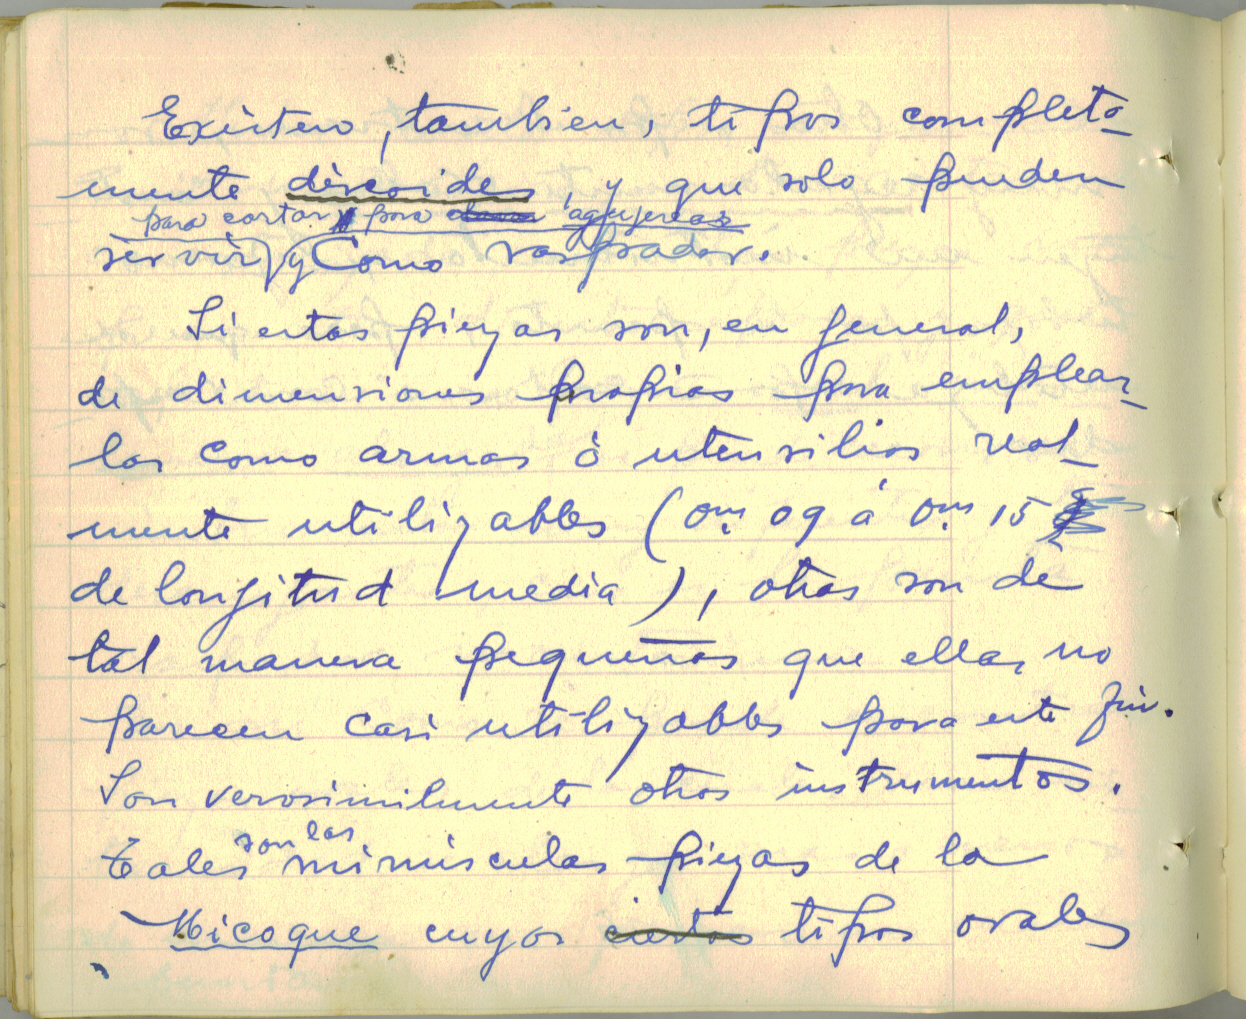 Existen, tambien, tipos completa-
mente discoides, y que solo pueden
para cortar y para agujerear
servir) y Como raspador.
Si estas piezas son, en general,
de dimensiones propias para emplear-
las como armas ó utensilios real-
mente utilizables (0m. 09 á 0m. 15
de longitud media), otras son de
tal manera pequeñas que ellas no
parecen casi utilizables para este fin.
Son verosimilmente otros instrumentos.
son las
Tales minúsculas piezas de la
Micoque cuyos ciertos tipos ovales